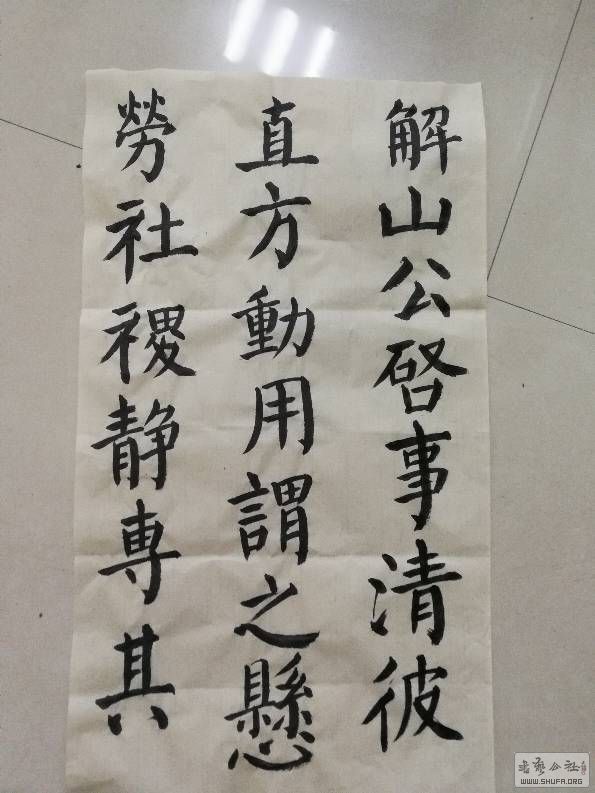 解山公啓事清彼
直方動用謂之懸
勞社稷静専其
书艺公社
WWW.SHUFA.ORG